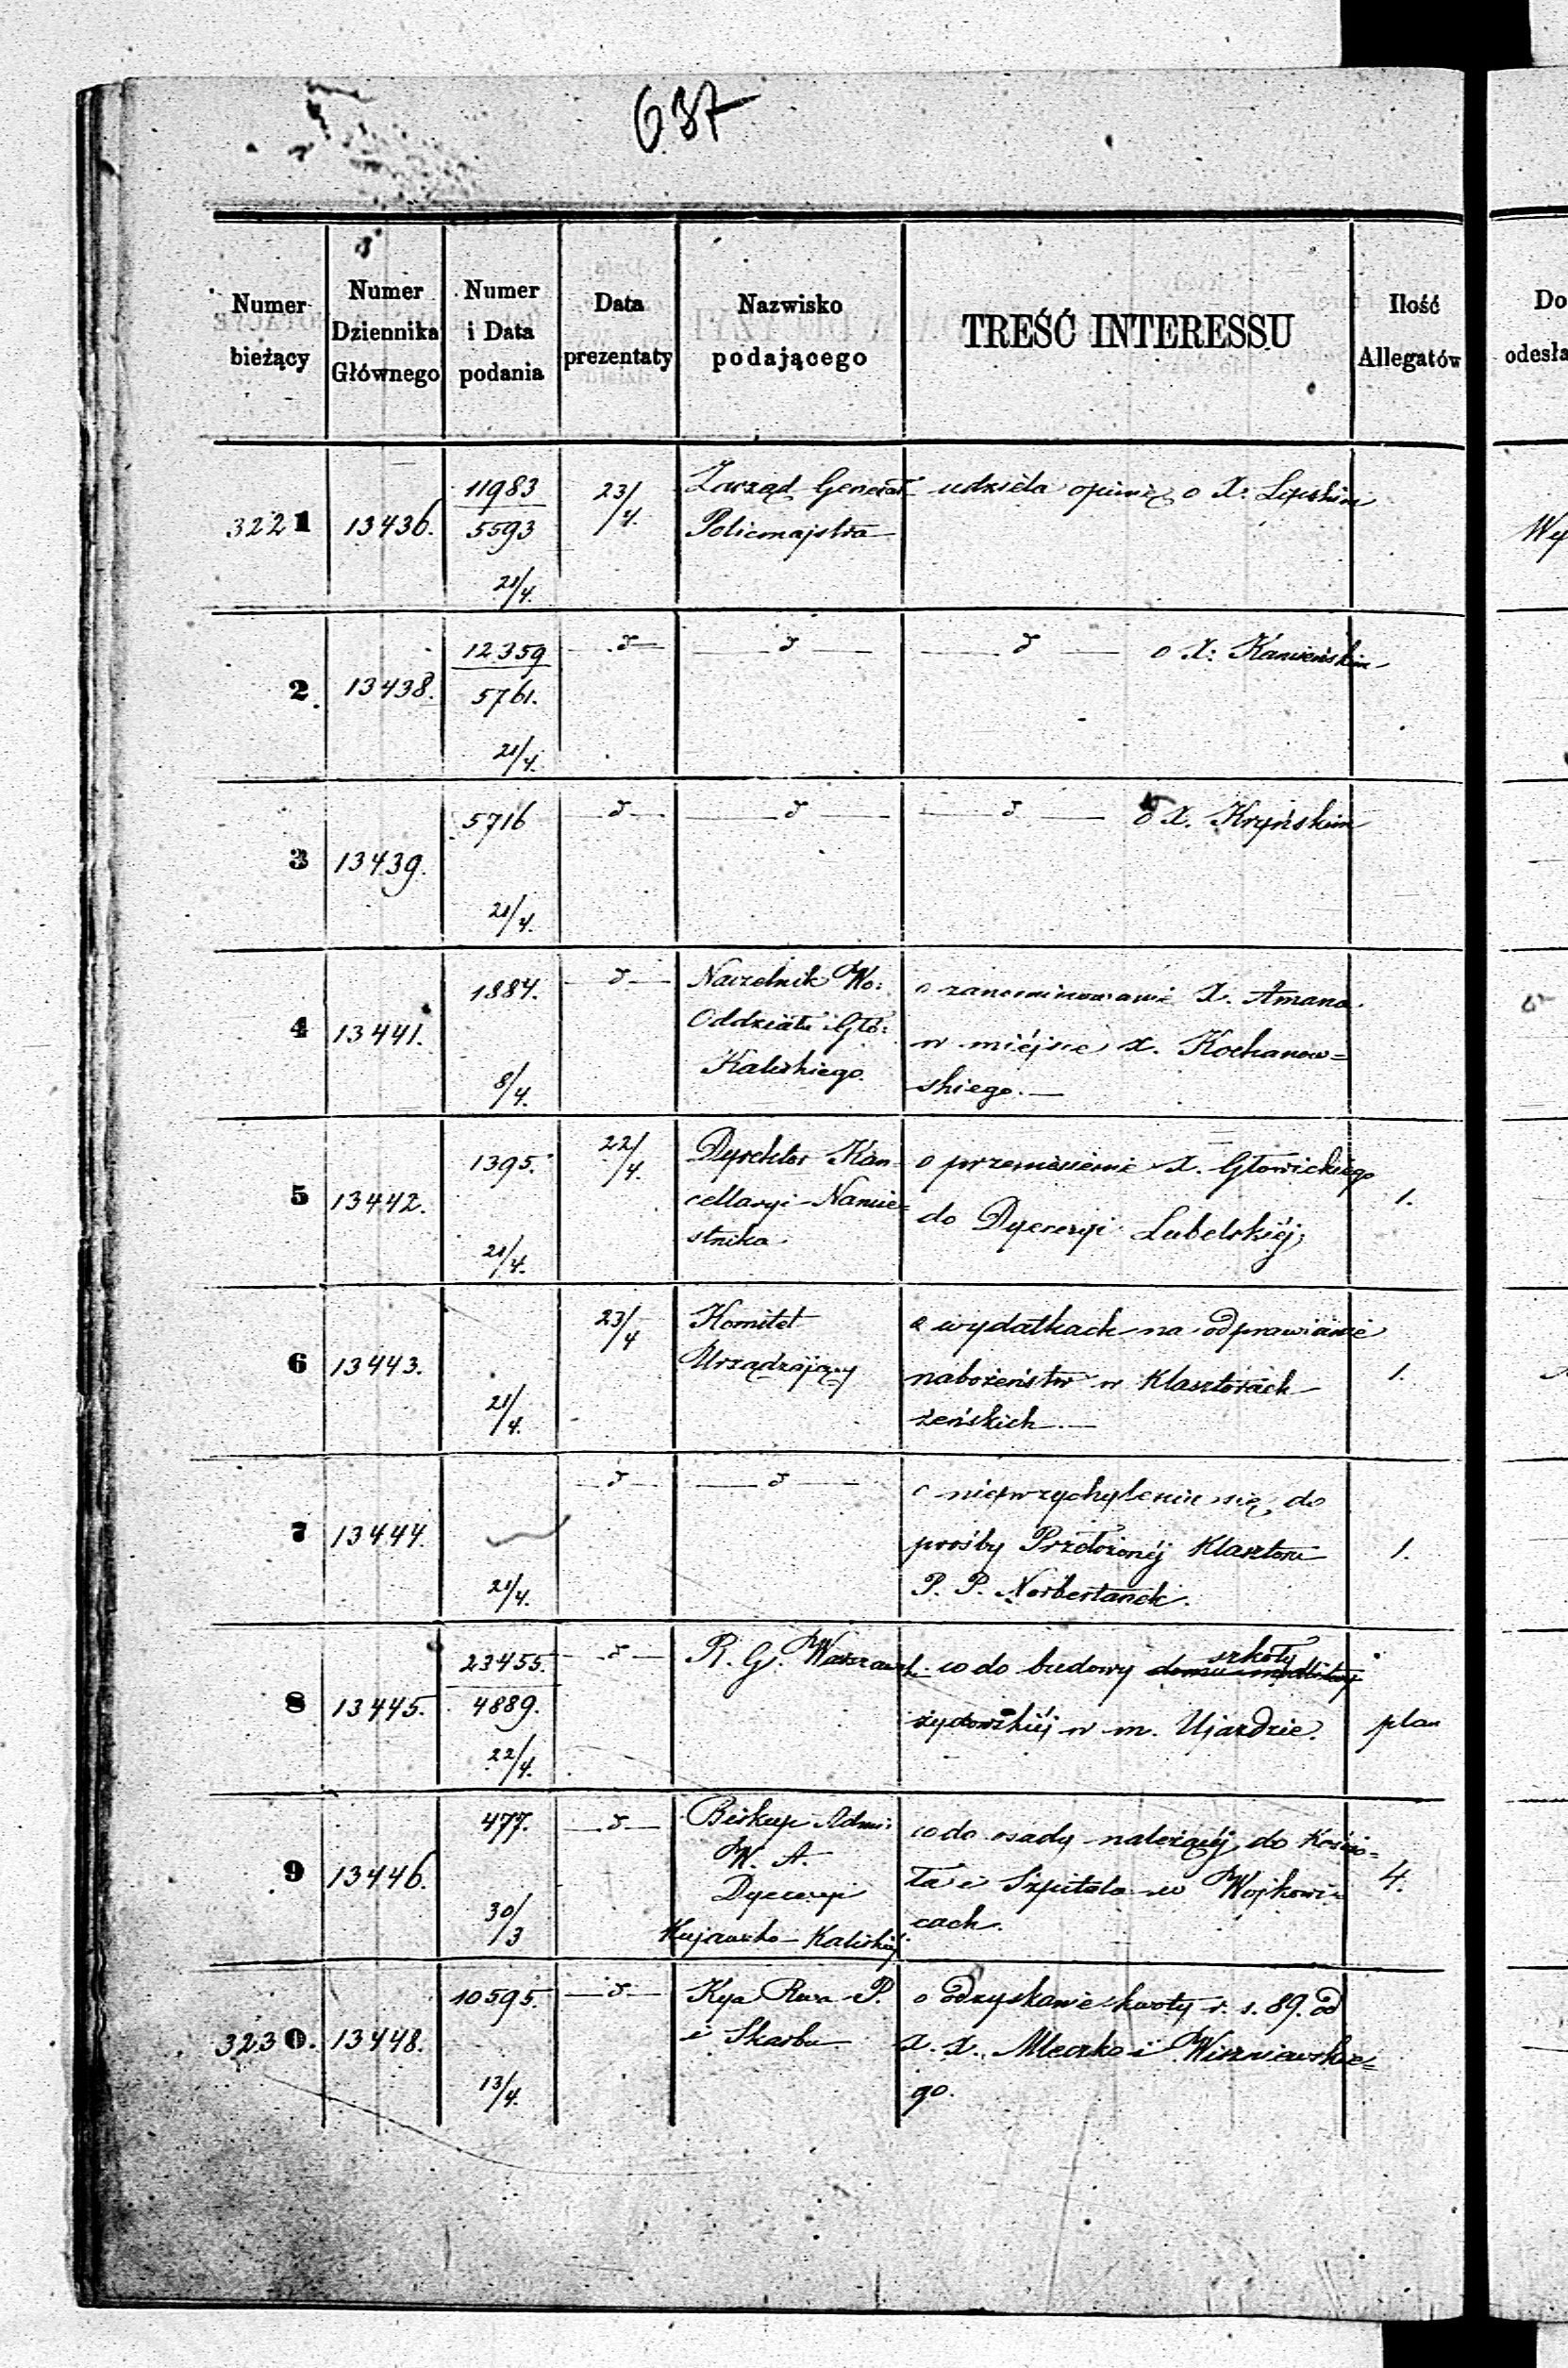 637
Numer bieżący | Numer Dziennika Głównego | Numer i Data podania | Data prezentaty | Nazwisko podającego | TREŚĆ INTERESSU | Ilość Allegatów | Do odesła
3221 | 13436. | 11983 / 5593 21/4. | 23/4. | Zarząd Generał Policmajstra | udziela opinię o X. Lipskim | | Wy
2. | 13438. | 12359 / 5761. 21/4. | —d— | —d— | —d— o X: Kamieńskim
3 | 13439. | 5716 21/4. | —d— | —d— | —d— o X. Kryńskim
4 | 13441. | 1884. 8/4. | —d— | Naczelnik Wo: Oddziału Głó: Kaliskiego. | o zanominowanie X. Amana w miéjsce X. Kochanow= skiego.—
5 | 13442. | 1395. 21/4. | 22/4. | Dyrektor Kan cellaryi Namie= stnika. | o przeniesienie X. Głowickiego do Dyecezyi Lubelskiéj; | 1.
6 | 13443. | 21/4. | 23/4 | Komitet Urządzający | o wydatkach na odprawianie nabożeństw w Klasztorach żeńskich.— | 1.
7 | 13444. | 21/4. | —d— | —d— | o nieprzychyleniu się do prośby Przełożonéj Klasztoru P. P. Norbertanek. | 1.
8 | 13445. | 23455. / 4889. 22/4. | —d— | R. G. Warszawsk. | co do budowy domu modlitwy szkoły żydowskiéj w m. Ujazdzie. | plan
9 | 13446. | 477. 30/3 | —d— | Biskup Adm: W. A. Dyecezyi Kujawsko-Kaliskiéj | co do osady należącéj do Kościo= ła i Szpitala w Wojkowi= cach. | 4.
3230. | 13448. | 10595. 13/4. | —d— | Kya Rwa P. i Skarbu | o odzyskanie kwoty r. s. 89. od X. X. Meczko i Wiszniewskie= go.